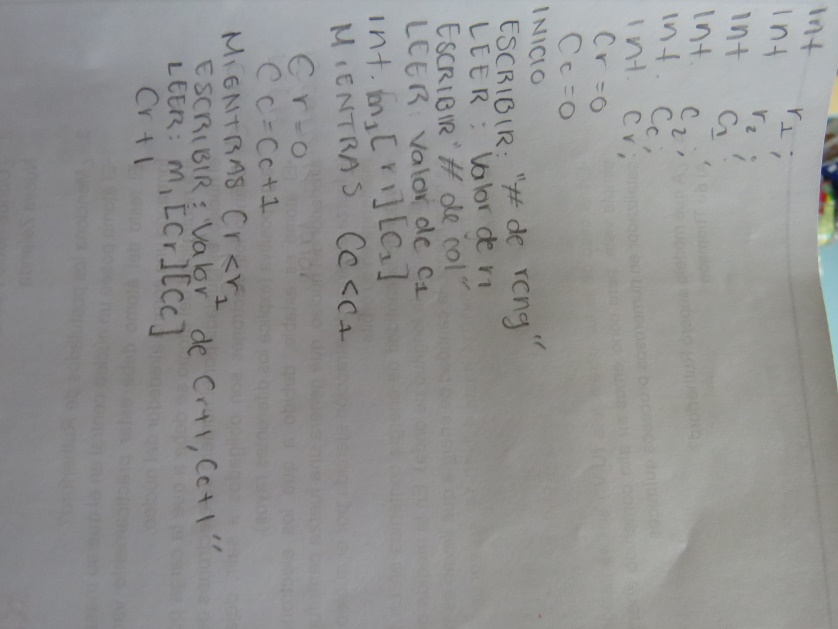 Int r1;
Int r2;
Int C1;
Int. C2;
Int. Cc;
Int. Cr;
Cr=0
Cc=0
INICIO
ESCRIBIR: "# de reng"
LEER: Valor de r1
ESCRIBIR "# de col"
LEER: Valor de c1
Int. m1[r1][C1]
MIENTRAS Cc<C1
Cr=0
Cc=Cc+1
MIENTRAS Cr<r1
ESCRIBIR: "Valor de Cr+1, Cc+1"
LEER: m1[Cr][Cc]
Cr+1